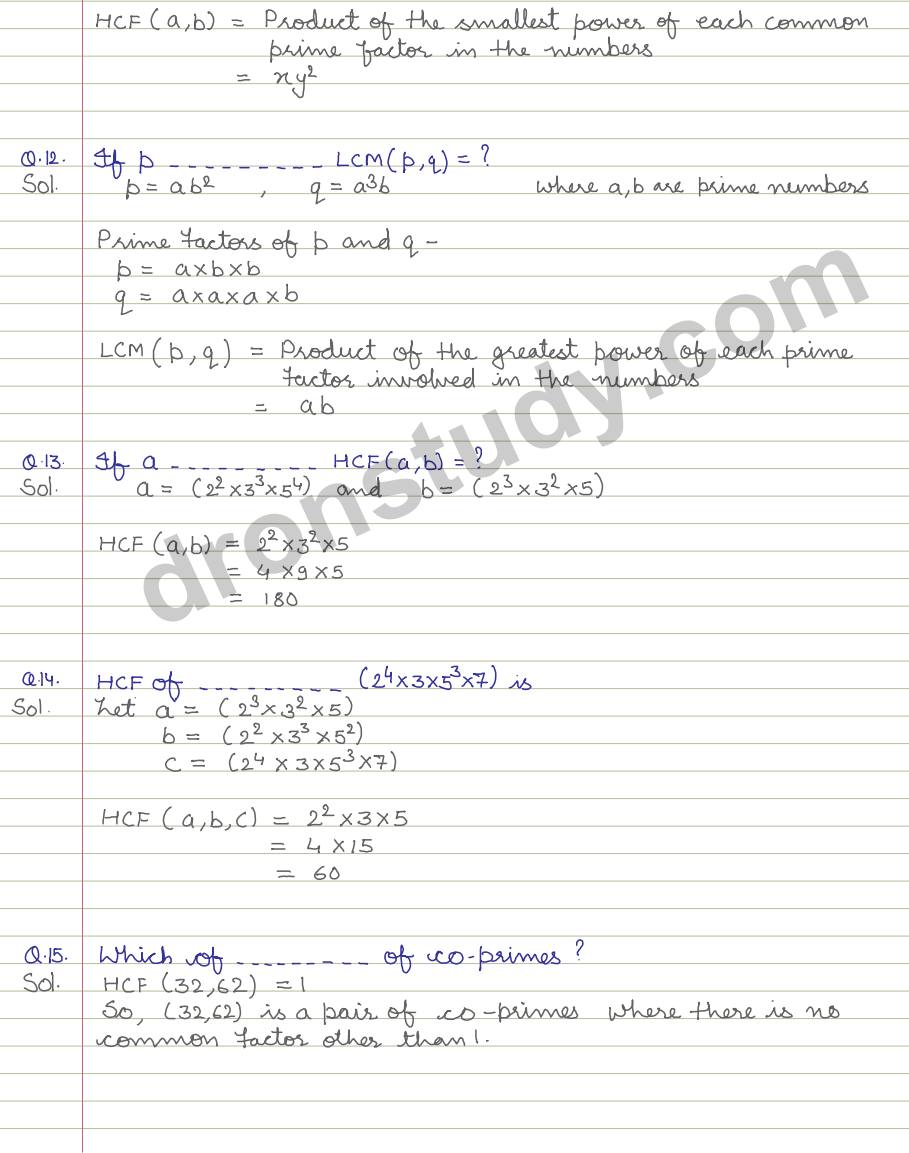 HCF (a,b) = Product of the smallest power of each common
prime factor in the numbers
= xy²
Q.12. If p _ _ _ _ _ _ _ _ _ _ LCM(p,q) = ?
Sol. p = ab² , q = a³b where a,b are prime numbers
Prime factors of p and q -
p = a×b×b
q = a×a×a×b
LCM (p,q) = Product of the greatest power of each prime
factor involved in the numbers
= ab
Q.13. If a _ _ _ _ _ _ _ _ _ HCF(a,b) = ?
Sol. a = (2²×3³×5⁴) and b = (2³×3²×5)
HCF (a,b) = 2²×3²×5
= 4×9×5
= 180
Q.14. HCF of _ _ _ _ _ _ _ _ _ (2⁴×3×5³×7) is
Sol. Let a = (2³×3²×5)
b = (2²×3³×5²)
c = (2⁴×3×5³×7)
HCF (a,b,c) = 2²×3×5
= 4×15
= 60
Q.15. Which of _ _ _ _ _ _ _ _ _ of co-primes ?
Sol. HCF (32,62) = 1
So, (32,62) is a pair of co-primes where there is no
common factor other than 1.
dronstudy.com